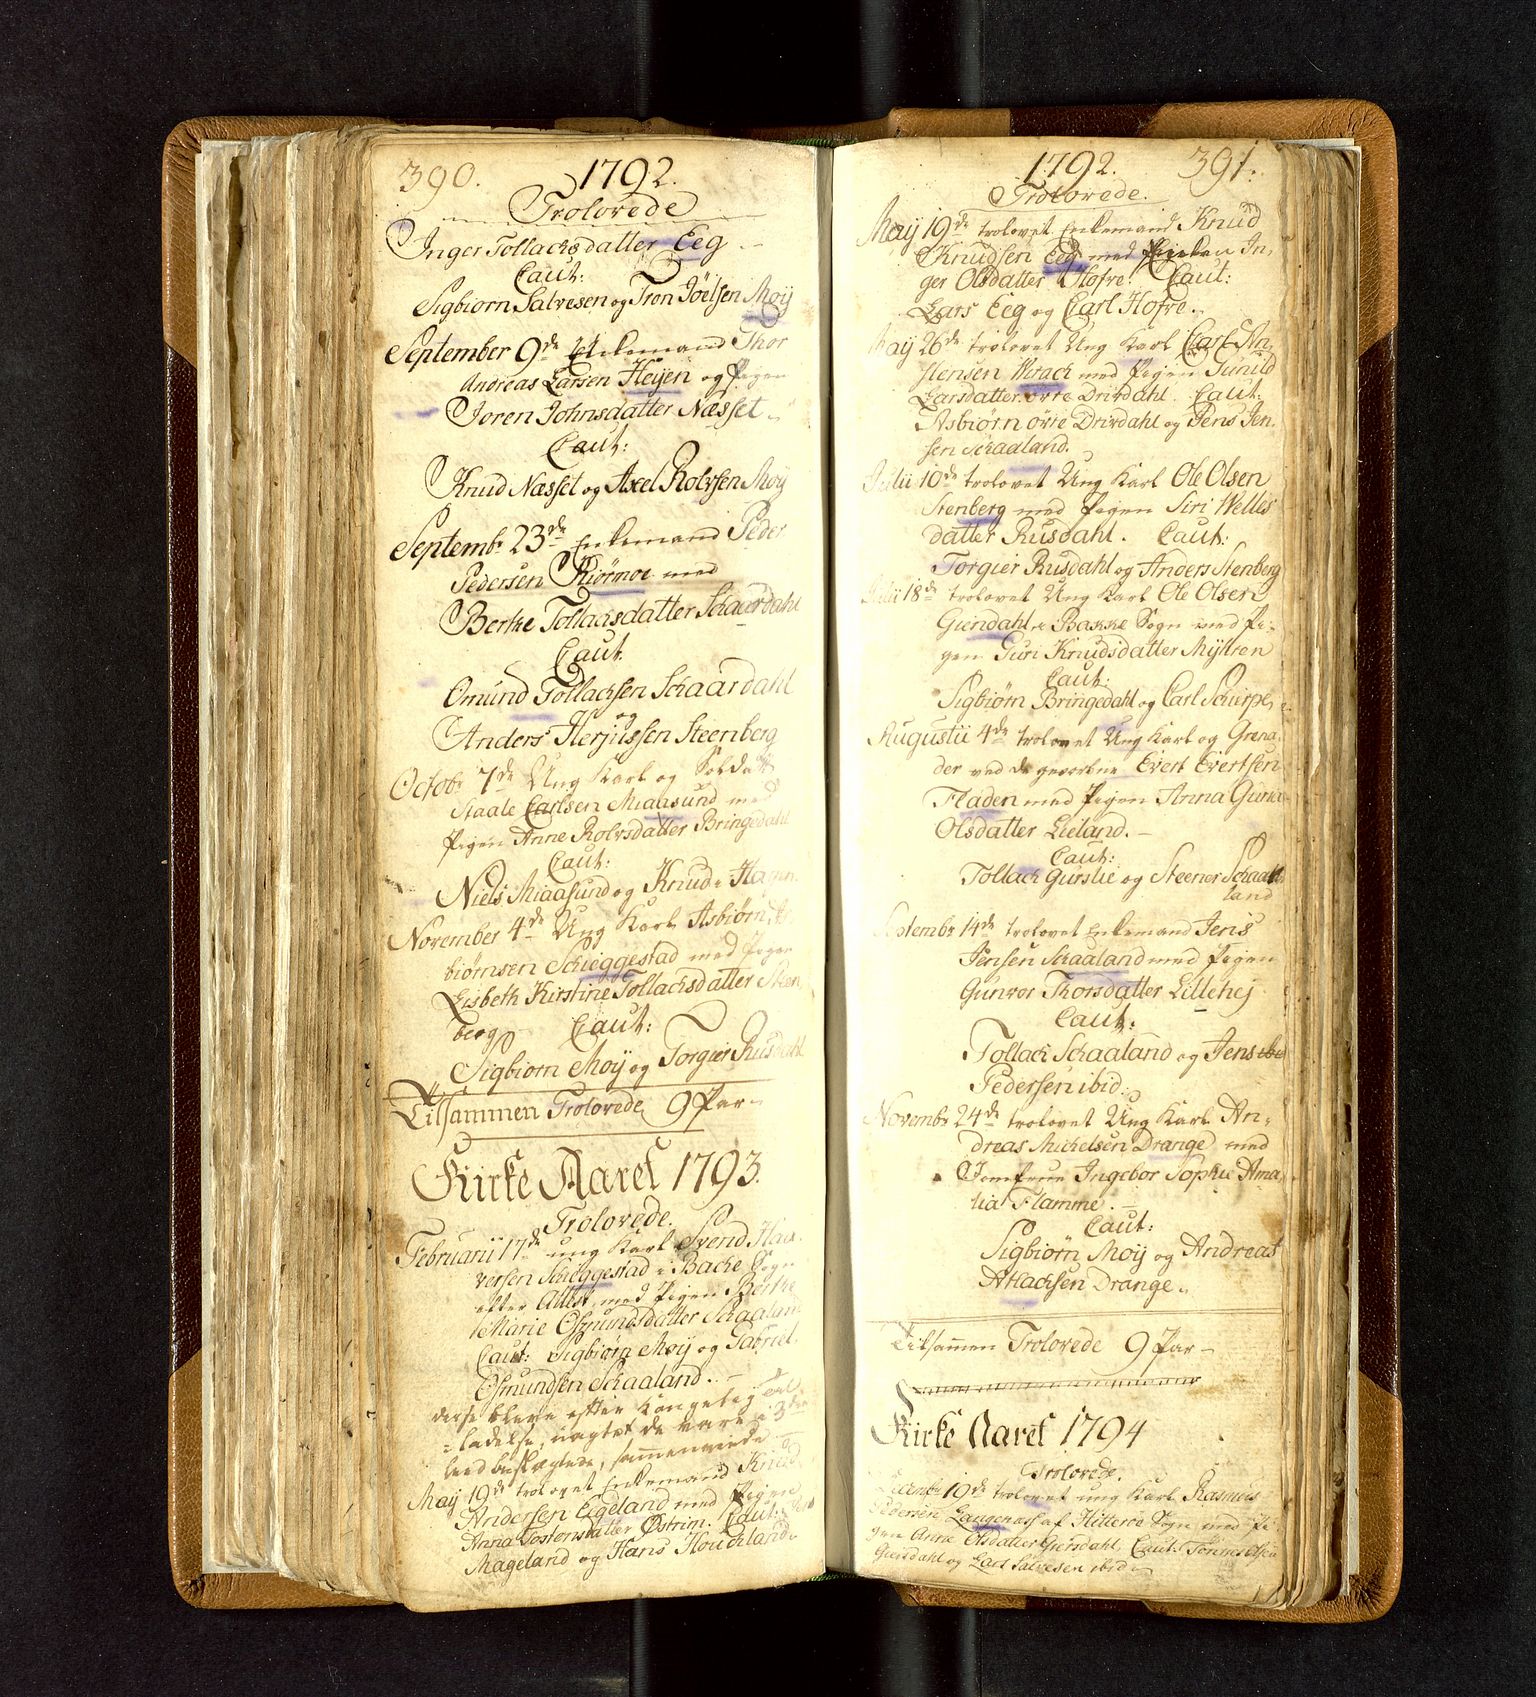 390.
1792.
Trolovede
Inger Tollachsdatter Eeg
Caut:
Sigbiorn Salvesen og Tron Jöelsen Moÿ
September 9de Enkemand Thor
Andreas Larsen Heÿen og Pigen
Joren Johnsdatter Næsset
Caut:
Knud Næsset og Axel Rolvsen Moÿ
Septembr 23de Enkemand Peder
Pedersen Kiörmoe med
Berthe Tollachsdatter Schaardahl
Caut
Omund Tollachsen Schaardahl
og
Anders Herjussen Steenberg
Octobr 7de Ung Karl og Soldat
Staale Carlsen Miaasund med
Pigen Anne Rolvsdatter Bringedahl
Caut:
Niels Miaasund og Knud
November 4de Ung Karl Asbiörn As
biörnsen Scheggestad med Pigen
Lisbeth Kirstine Tollachsdatter Steen
berg Caut:
Sigbiorn Moÿ og Torgier Rusdahl
Tilsammen Trolovede 9 Par
Kirke Aaret 1793.
Trolovede.
Februarii 17de ung Karl Svend Haa
versen Scheggestad i Bache Sogn
efter Attest, med Pigen Berthe
Marie Osmundsdatter Schaaland
Caut: Sigbiörn Moÿ og Gabriel
Osmundsen Schaaland.
disse bleve efter Kongelig Til
ladelse, uagtet de vare i 3die
leed beslægtede, sammenviede
Maÿ 19de trolovet Enkemand Knud
Andersen Eigeland med Pigen
Anna Tostensdatter Östrim. Caut:
Mageland og Hans Houchland
1792.
391.
Trolovede.
Maÿ 19de trolovet Enkemand Knud
Knudsen Eeg med Pigen In
ger Olsdatter Hofre. Caut:
Lars Eeg og Carl Hofre.
Maÿ 26de trolovet Ung Karl Carl An
stensen Wrach med Pigen Gunild
Larsdatter övre Drivdahl. Caut:
Asbiörn övre Drivdahl og Jens Jen
sen Schaaland.
Julii 10de trolovet Ung Karl Ole Olsen
Stenberg med Pigen Siri Welles
datter Rusdahl. Caut:
Torgier Rusdahl og Anders Stenberg
Julii 18de trolovet Ung Karl Ole Olsen
Gursdahl i Bakke Sogn med Pi
gen Guri Knudsdatter
Caut:
Sigbiörn Bringedahl og Carl Schirpe
Augustii 4de trolovet Ung Karl og Grena
der ved de gevorbne Evert Evertsen
Fladen med Pigen Anna Guria
Olsdatter Lieland.
Caut:
Tollach Gurslie og Steener Schaa
land
Septembr 14de trolovet Enkemand Jens
Jensen Schaaland med Pigen
Gunvor Thorsdatter Lillehej
Caut:
Tollach Schaaland og Jens
Pedersen ibid:
Novembr 24de trolovet Ung Karl An
dreas Michelsen Drange med
Jomfrue Ingebor Sophie Ama
lia Flamme.
Caut:
Sigbiörn Moÿ og Andreas
Atlachsen Drange.
Tilsammen Trolovede 9 Par
Kirke Aaret 1794
Trolovede.
19de trolovet ung Karl Rasmus
Pedersen Langenæs af Hitteroe Sogn med Pi
gen Anne Olsdatter Gursdahl. Caut: Tönnes Olsen
Gursdahl og Lars Salvesen ibid